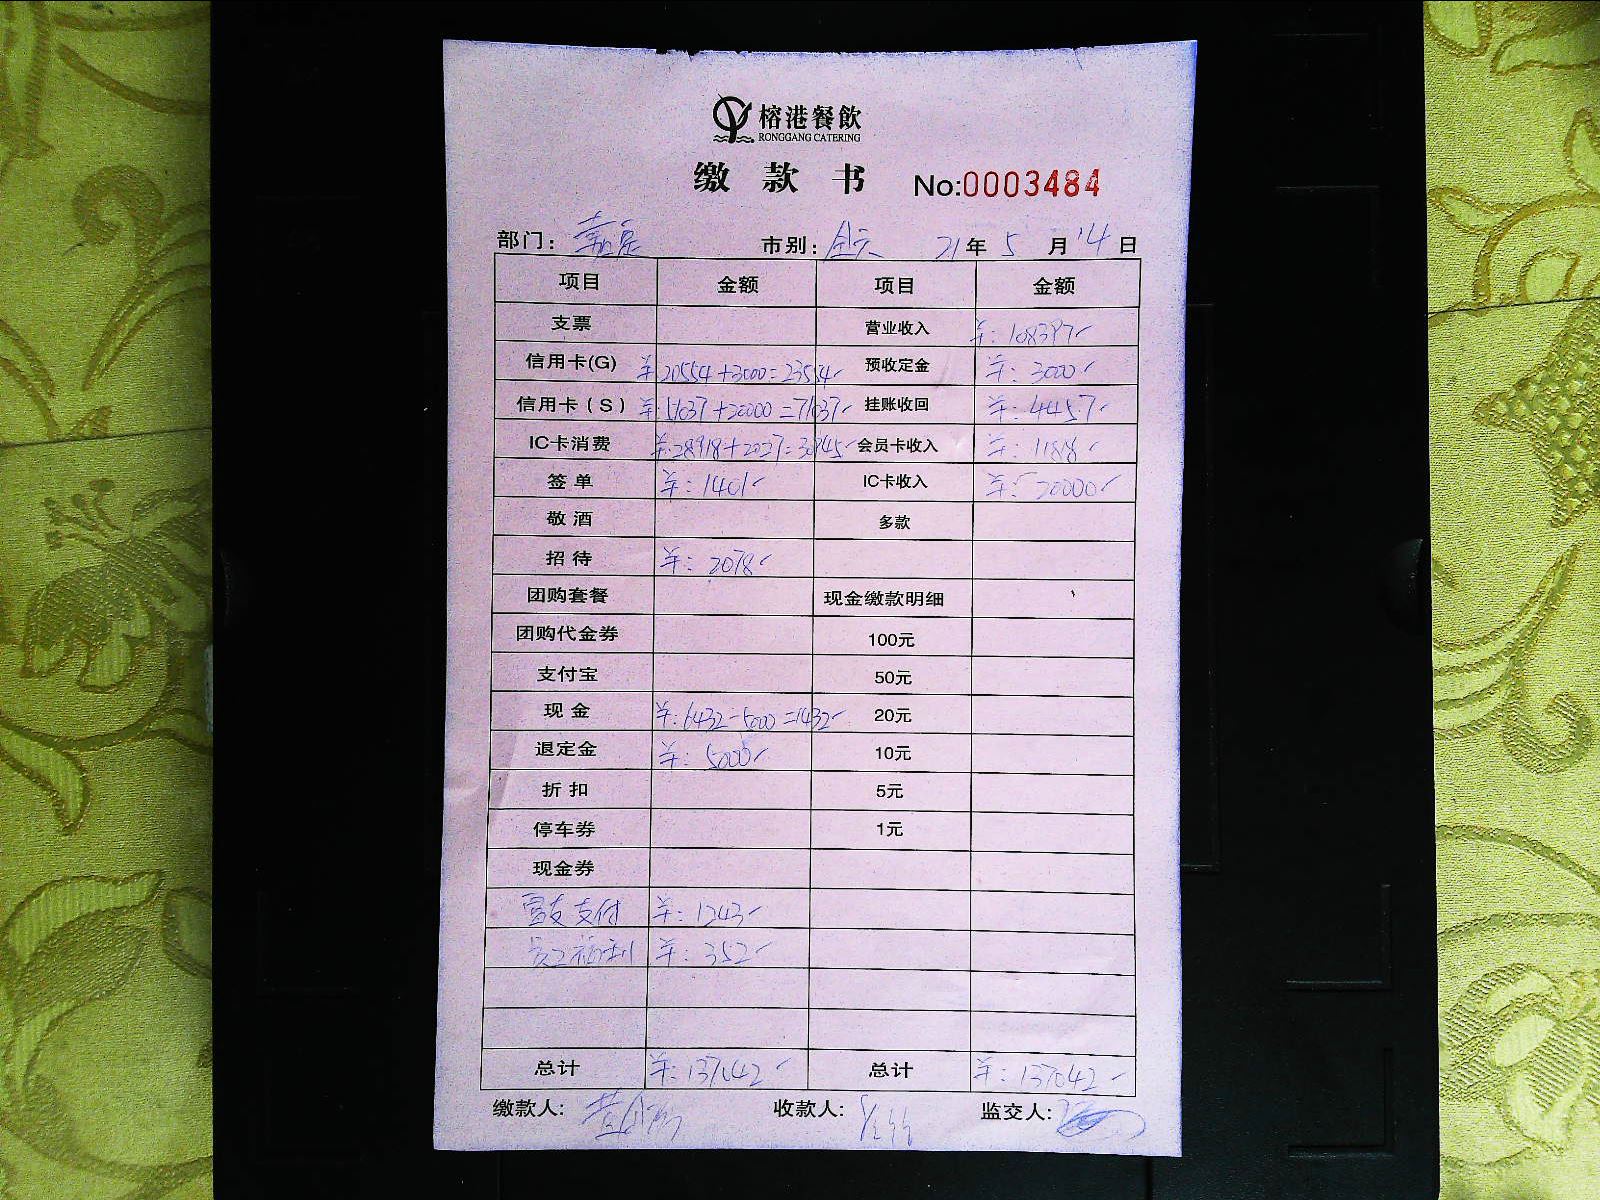 榕港餐飲
RONGGANG CATERING
缴款书 No:0003484
部门: 嘉定 市别: 全天 21年 5 月 14 日
项目 金额 项目 金额
支票 营业收入 ¥: 108397
信用卡(G) ¥20554+3000=23554 预收定金 ¥: 3000
信用卡(S) ¥:51037+20000=71037 挂账收回 ¥: 4457
IC卡消费 ¥:28918+2027=30945 会员卡收入 ¥: 1188
签单 ¥: 1401 IC卡收入 ¥: 20000
敬酒 多款
招待 ¥: 2078
团购套餐 现金缴款明细
团购代金券 100元
支付宝 50元
现金 ¥:6432-5000=1432 20元
退定金 ¥: 5000 10元
折扣 5元
停车券 1元
现金券
富友支付 ¥: 1243
员工福利 ¥: 352
总计 ¥: 137042 总计 ¥: 137042
缴款人: 收款人: 监交人: